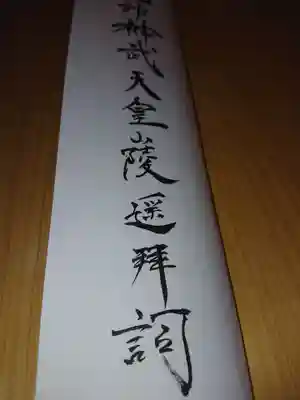 諸神武天皇山陵遥拝詞